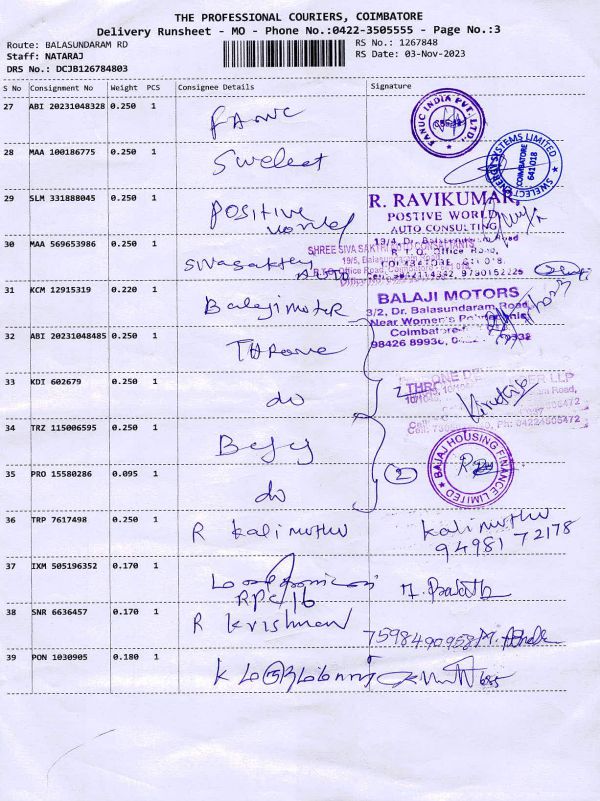 THE PROFESSIONAL COURIERS, COIMBATORE
Delivery Runsheet - MO - Phone No.:0422-3505555 - Page No.:3
Route: BALASUNDARAM RD
RS No.: 1267848
Staff: NATARAJ
RS Date: 03-Nov-2023
DRS No.: DCJB126784803
S No Consignment No Weight PCS Consignee Details Signature
27 ABI 20231048328 0.250 1 FANUC
FANUC INDIA PVT. LTD.
28 MAA 100186775 0.250 1 Swelect
SWELECT ENERGY SYSTEMS LIMITED
COIMBATORE
641 018
29 SLM 331888045 0.250 1 Positive
World
R. RAVIKUMAR,
POSTIVE WORLD
AUTO CONSULTING
19/4, Dr. Balasundaram Road
R.T.O. Office Road,
30 MAA 569653986 0.250 1 Sivasakthy
Auto
SHREE SIVA SAKTHI
19/5, Balasundaram
R.T.O. Office Road,
31 KCM 12915319 0.220 1 Balaji motor
BALAJI MOTORS
3/2, Dr. Balasundaram Road,
Near Women's
Coimbatore
98426 89930,
32 ABI 20231048485 0.250 1 Throne
33 KDI 602679 0.250 1 do
2
THRONE
LLP
Ph: 04224505472
34 TRZ 115006595 0.250 1 Bajaj
BAJAJ HOUSING FINANCE LIMITED
35 PRO 15580286 0.095 1 do
2
36 TRP 7617498 0.250 1 R kalimuthu
kalimuthu
94981 72178
37 IXM 505196352 0.170 1
RPC 16
38 SNR 6636457 0.170 1 R krishnan
7598490958
39 PON 1030905 0.180 1 K